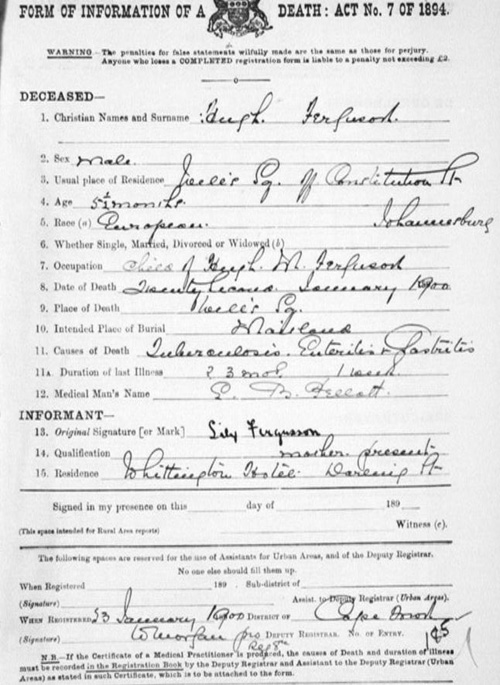 FORM OF INFORMATION OF A DEATH: ACT No. 7 OF 1894.
WARNING—The penalties for false statements wilfully made are the same as those for perjury.
Anyone who loses a COMPLETED registration form is liable to a penalty not exceeding £2.
DECEASED—
1. Christian Names and Surname Hugh Ferguson.
2. Sex Male.
3. Usual place of Residence Sq. off Constitution St
Johannesburg
4. Age 5½ months.
5. Race (a) European.
6. Whether Single, Married, Divorced or Widowed (b)
7. Occupation Child of Hugh M. Ferguson
8. Date of Death Twenty second January 1900
9. Place of Death Sq.
10. Intended Place of Burial Maitland
11. Causes of Death Tuberculosis. Enteritis & Gastritis
11A. Duration of last Illness ? 3 mos. 1 week
12. Medical Man's Name
INFORMANT—
13. Original Signature [or Mark] Lily Fergusson
14. Qualification mother present
15. Residence Whittington Hotel St
Signed in my presence on this day of 189
Witness (c).
(This space intended for Rural Area reports)
The following spaces are reserved for the use of Assistants for Urban Areas, and of the Deputy Registrar.
No one else should fill them up.
When Registered 189 . Sub-district of
(Signature) Assist. to Deputy Registrar (Urban Areas).
WHEN REGISTERED 23 January 1900 DISTRICT OF Cape Town
(Signature) pro DEPUTY REGISTRAR. NO. OF ENTRY.
N.B.—If the Certificate of a Medical Practitioner is produced, the causes of Death and duration of illness
must be recorded in the Registration Book by the Deputy Registrar and Assistant to the Deputy Registrar (Urban
Areas) as stated in such Certificate, which is to be attached to the form.